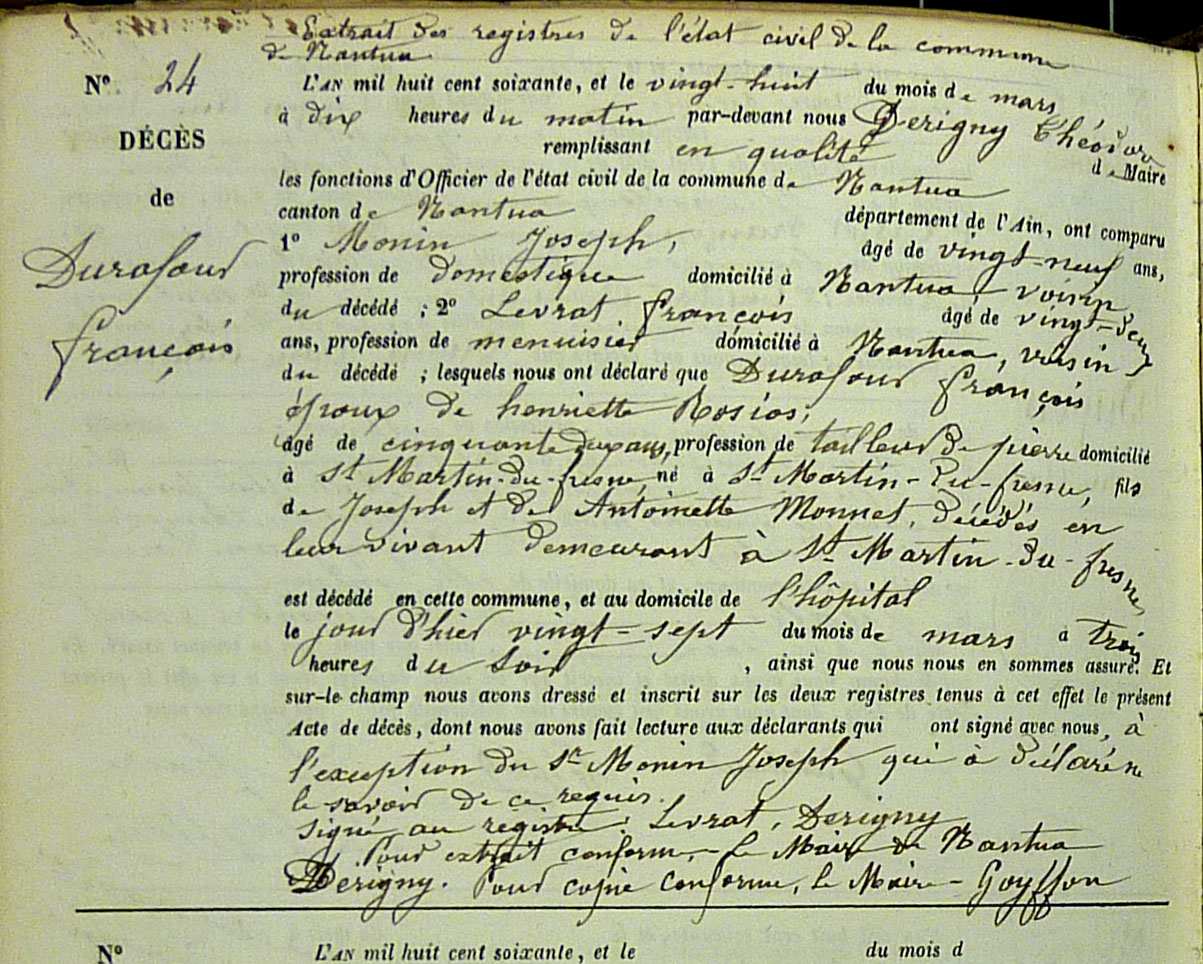 Extrait des registres de l'état civil de la commune
de Nantua
N° 24
DÉCÈS
de
Durafour
françois
L'AN mil huit cent soixante, et le vingt-huit du mois de mars
à dix heures du matin par-devant nous Derigny Théodore
remplissant en qualité de Maire
les fonctions d'Officier de l'état civil de la commune de Nantua
canton de Nantua département de l'Ain, ont comparu
1° Monin Joseph, âgé de vingt-neuf ans,
profession de domestique domicilié à Nantua voisin
du décédé ; 2° Levrat françois âgé de vingt-deux
ans, profession de menuisier domicilié à Nantua, voisin
du décédé ; lesquels nous ont déclaré que Durafour françois
époux de henriette Rosias,
âgé de cinquante deux ans, profession de tailleur de pierre domicilié
à St Martin-du-fresne, né à St Martin-du-fresne, fils
de Joseph et de Antoinette Monnet, décédés en
leur vivant demeurant à St Martin-du-fresne,
est décédé en cette commune, et au domicile de l'hôpital
le jour d'hier vingt-sept du mois de mars à trois
heures du soir , ainsi que nous nous en sommes assuré. Et
sur-le-champ nous avons dressé et inscrit sur les deux registres tenus à cet effet le présent
Acte de décès, dont nous avons fait lecture aux déclarants qui ont signé avec nous, à
l'exception du Sr Monin Joseph qui à déclaré ne
le savoir de ce requis.
signé au registre : Levrat, Derigny
Pour extrait conforme, - Le Maire de Nantua
Derigny. Pour copie conforme, le Maire - Goyffon
N° L'AN mil huit cent soixante, et le du mois d